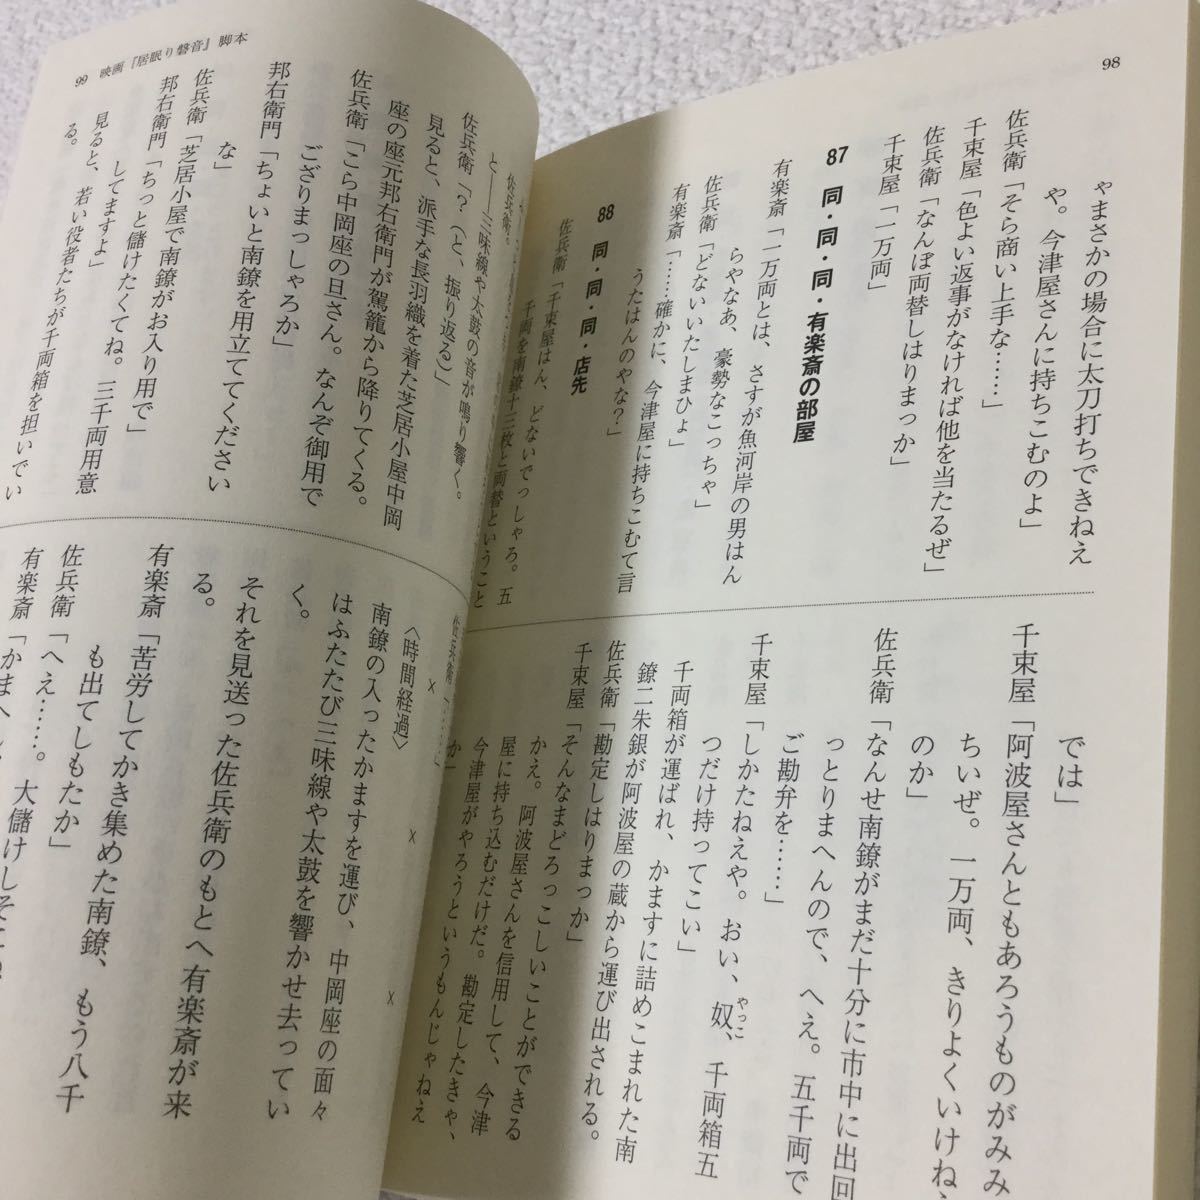 98
やまさかの場合に太刀打ちできねえ
や。今津屋さんに持ちこむのよ」
佐兵衛「そら商い上手な……」
千束屋「色よい返事がなければ他を当たるぜ」
佐兵衛「なんぼ両替しはりまっか」
千束屋「一万両」
87 同・同・同・有楽斎の部屋
有楽斎「一万両とは、さすが魚河岸の男はん
らやなあ、豪勢なこっちゃ」
佐兵衛「どないいたしまひょ」
有楽斎「……確かに、今津屋に持ちこむて言
うたはんのやな?」
88 同・同・同・店先
佐兵衛「千束屋はん、どないでっしゃろ。五
千両を南鐐十三枚と両替ということ
では」
千束屋「阿波屋さんともあろうものがみみ
ちいぜ。一万両、きりよくいけね
のか」
佐兵衛「なんせ南鐐がまだ十分に市中に出回
っとりまへんので、へえ。五千両で
ご勘弁を……」
千束屋「しかたねえや。おい、奴、千両箱五
やっこ
つだけ持ってこい」
千両箱が運ばれ、かますに詰めこまれた南
鐐二朱銀が阿波屋の蔵から運び出される。
佐兵衛「勘定しはりまっか」
千束屋「そんなまどろっこしいことができる
かえ。阿波屋さんを信用して、今津
屋に持ち込むだけだ。勘定したきゃ、
今津屋がやろうというもんじゃねえ
か」
99 映画『居眠り磐音』脚本
佐兵衛。
と――三味線や太鼓の音が鳴り響く。
佐兵衛「?(と、振り返る)」
見ると、派手な長羽織を着た芝居小屋中岡
座の座元邦右衛門が駕籠から降りてくる。
佐兵衛「こら中岡座の旦さん。なんぞ御用で
ござりまっしゃろか」
邦右衛門「ちょいと南鐐を用立ててください
な」
佐兵衛「芝居小屋で南鐐がお入り用で」
邦右衛門「ちっと儲けたくてね。三千両用意
してますよ」
見ると、若い役者たちが千両箱を担いでい
る。
佐兵衛「……」
× × ×
〈時間経過〉
南鐐の入ったかますを運び、中岡座の面々
はふたたび三味線や太鼓を響かせ去ってい
く。
それを見送った佐兵衛のもとへ有楽斎が来
る。
有楽斎「苦労してかき集めた南鐐、もう八千
も出てしもたか」
佐兵衛「へえ……。大儲けしそこね
有楽斎「かまへん